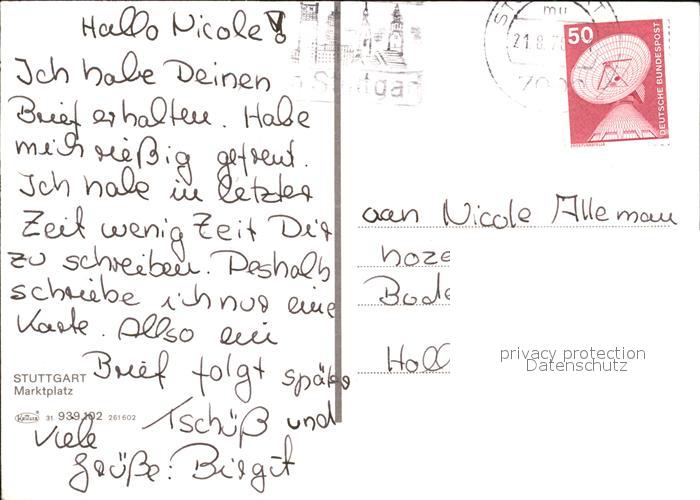 Hallo Nicole!
Ich habe Deinen
Brief erhalten. Habe
mich rießig gefreut.
Ich habe in letzter
Zeit wenig Zeit Dir
zu schreiben. Deshalb
schreibe ich nur eine
Karte. Allso ein
Brief folgt später
Tschüß und
Viele
Grüße: Birgit
STUTTGART
Marktplatz
31 939.102 261602
21.8.78
50
DEUTSCHE BUNDESPOST
aan Nicole Alleman
hoze
Bode
Holl
privacy protection
Datenschutz